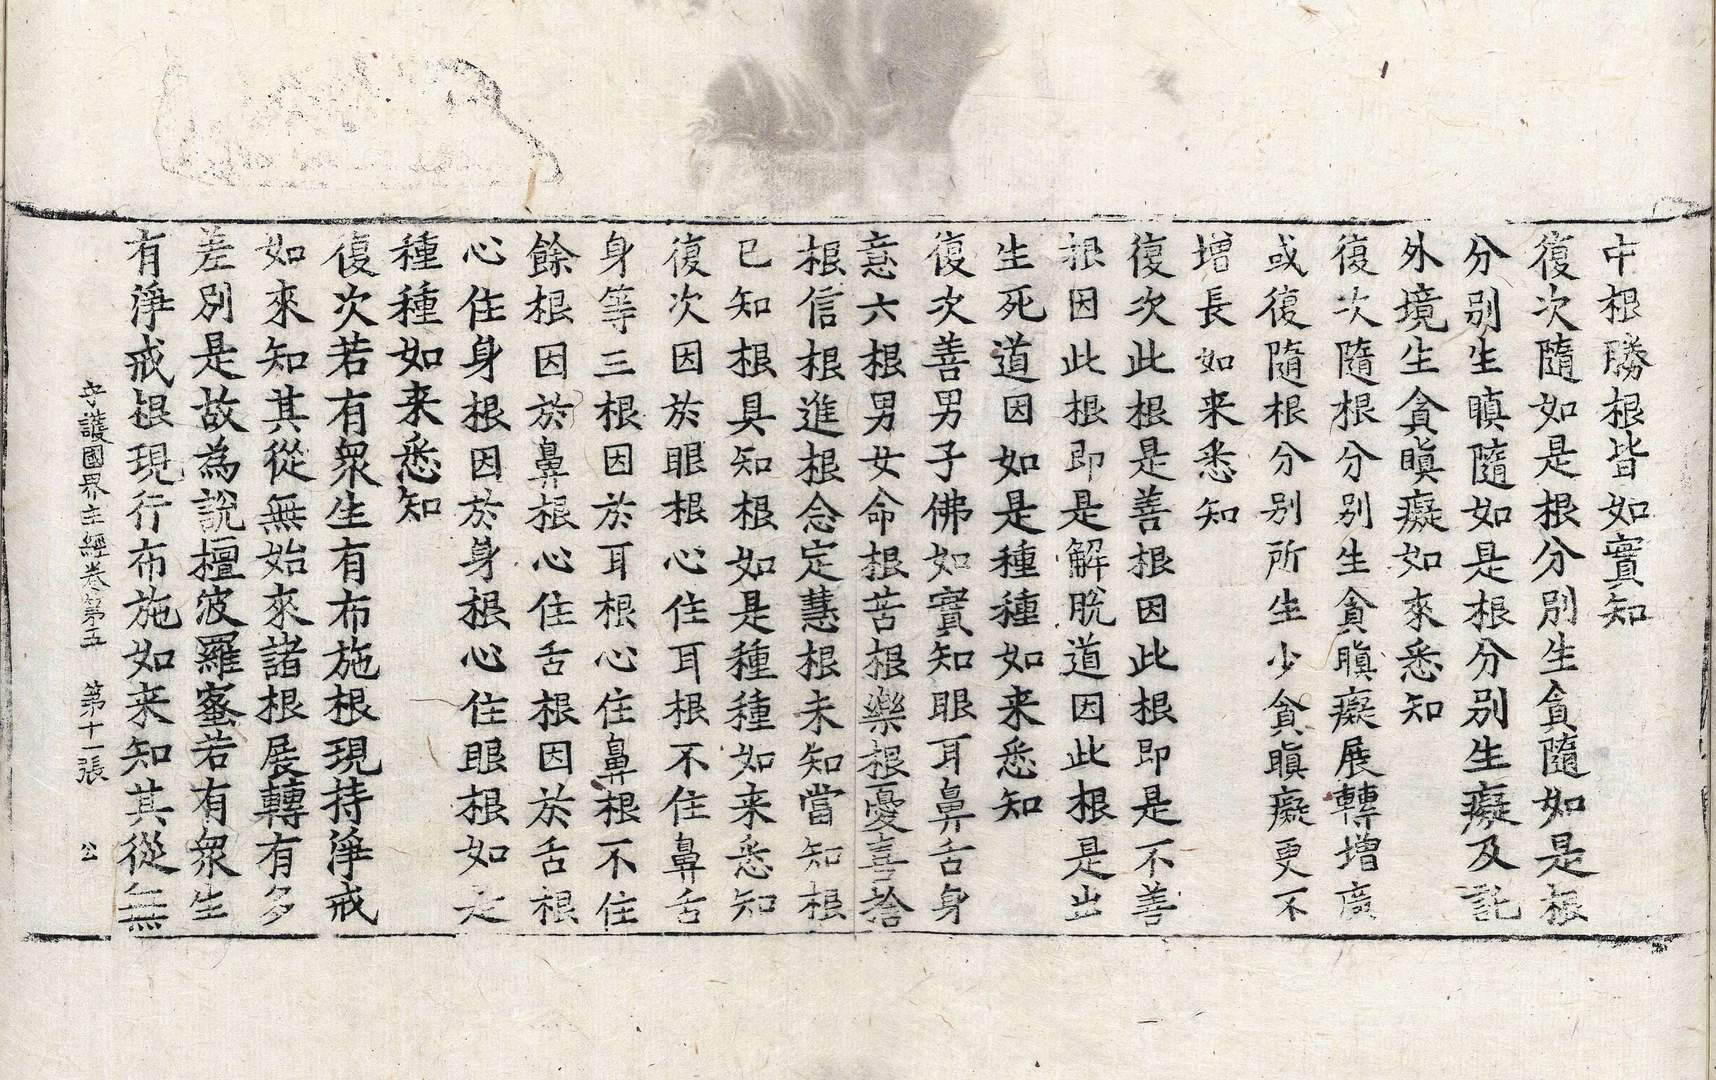 中根勝根皆如實知
復次隨如是根分別生貪隨如是根
分別生瞋隨如是根分別生癡及託
外境生貪瞋癡如來悉知
復次隨根分別生貪瞋癡展轉增廣
或復隨根分別所生少貪瞋癡更不
增長如来悉知
復次此根是善根因此根即是不善
根因此根即是解脫道因此根是出
生死道因如是種種如来悉知
復次善男子佛如實知眼耳鼻舌身
意六根男女命根苦根樂根憂喜捨
根信根進根念定慧根未知當知根
已知根具知根如是種種如来悉知
復次因於眼根心住耳根不住鼻舌
身等三根因於耳根心住鼻根不住
餘根因於鼻根心住舌根因於舌根
心住身根因於身根心住眼根如是
種種如来悉知
復次若有衆生有布施根現持淨戒
如來知其從無始來諸根展轉有多
差別是故為說檀波羅蜜若有衆生
有淨戒根現行布施如来知其從無
守護國界主經卷第五　第十一張　公